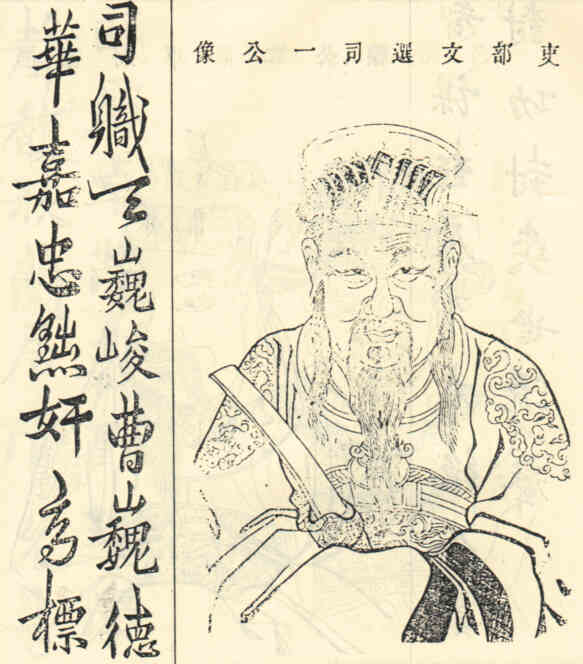 吏部文選司一公像
司軄一天巍峻曹巍德
華嘉忠黜奸高標